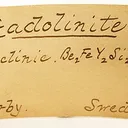 adolinite
clinic. Be₂FeY₂Si₂
rby. Swed